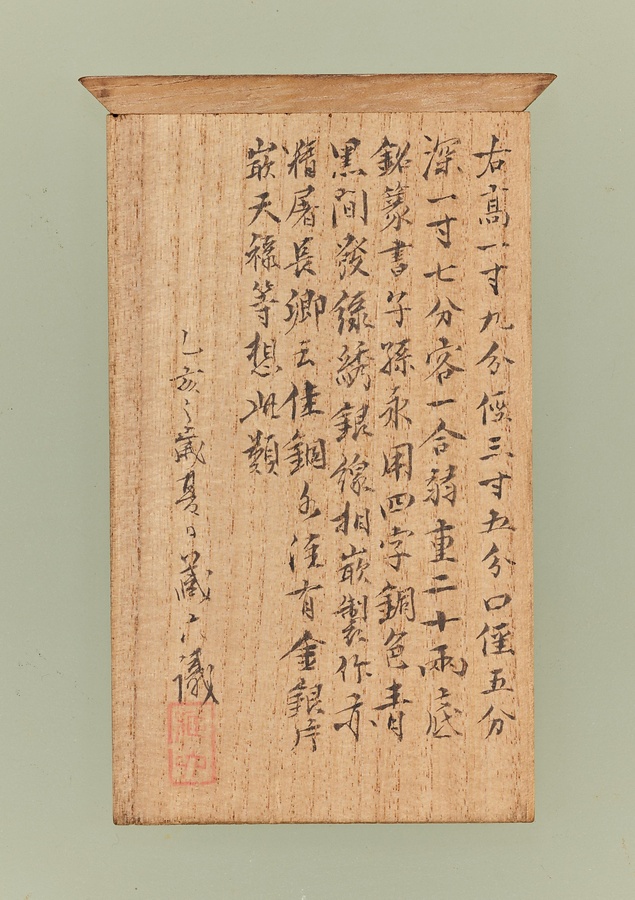 右高一寸九分徑三寸五分口徑五分
深一寸七分容一合弱重二十兩底
銘篆書子孫永用四字銅色青
黑間發緑綉銀線相嵌製作亦
精屠長卿云佳銅水注有金銀片
嵌天禄等想此類
乙亥之歳夏日蔵六儀